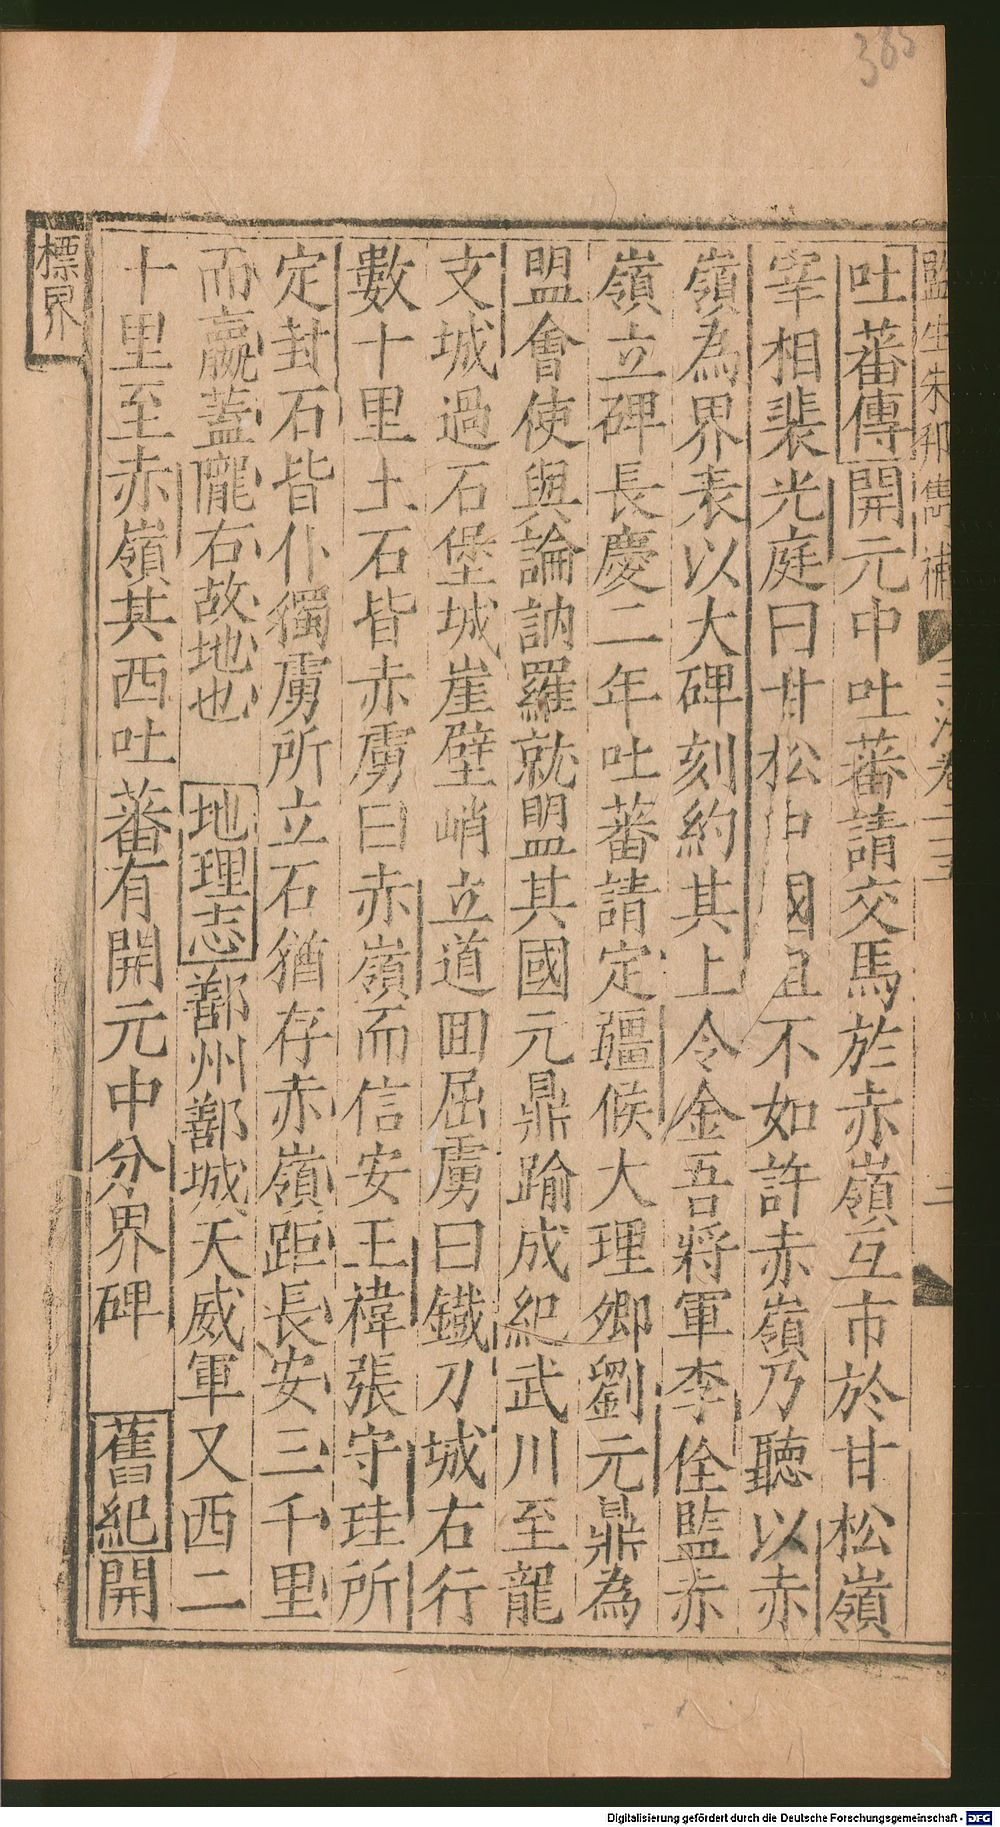 385
監生朱邦儁補
玉海卷二十五
二
吐蕃傳開元中吐蕃請交馬於赤嶺互市於甘松嶺
宰相裴光庭曰甘松中國阻不如許赤嶺乃聽以赤
嶺為界表以大碑刻約其上令金吾將軍李佺監赤
嶺立碑長慶二年吐蕃請定疆候大理卿劉元鼎為
盟會使與論訥羅就盟其國元鼎踰成紀武川至龍
支城過石堡城崖壁峭立道回屈虜曰鐵刀城右行
數十里土石皆赤虜曰赤嶺而信安王禕張守珪所
定封石皆仆獨虜所立石猶存赤嶺距長安三千里
而嬴蓋隴右故地也 地理志鄯州鄯城天威軍又西二
十里至赤嶺其西吐蕃有開元中分界碑 舊紀開
標界
Digitalisierung gefördert durch die Deutsche Forschungsgemeinschaft - DFG